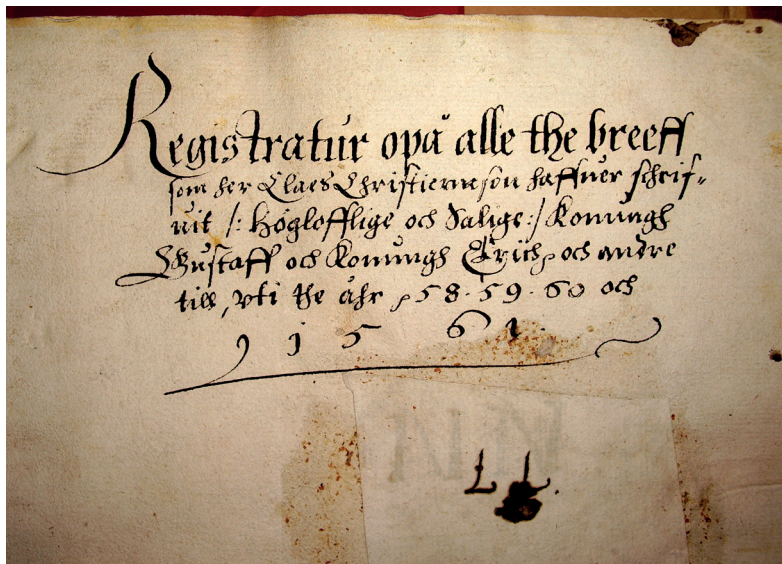 Registratur opå alle the breeff
som her Claes Christiernsson haffuer schrif-
uit /: Höglofflige och Salige :/ Konungh
Gustaff och Konungh Erich, och andre
till, vti the åhr, 58. 59. 60 och
1561.